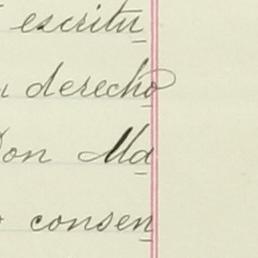 escritu
derecho
Don Ma
consen